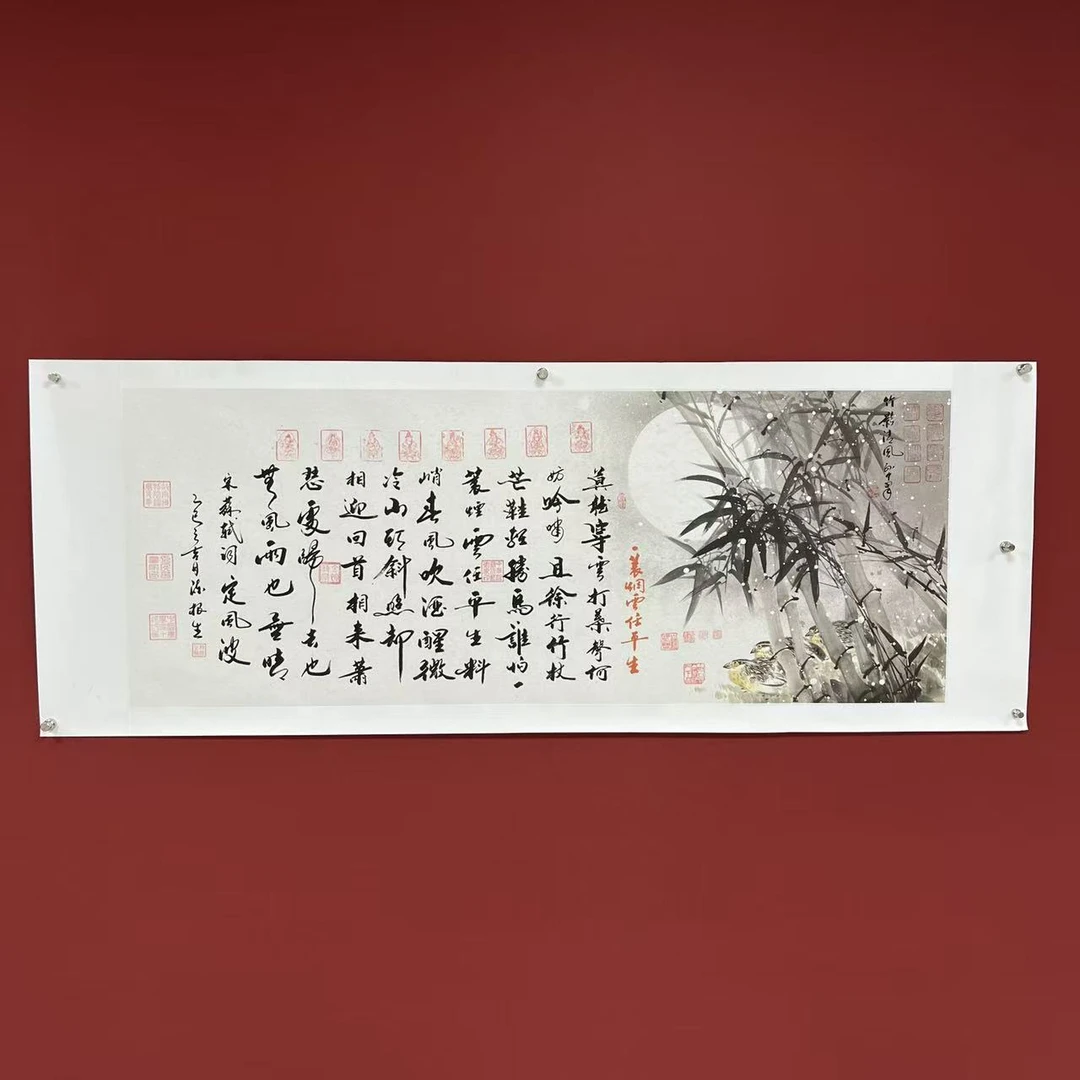 竹影清風
一蓑烟雲任平生
莫聽穿雲打葉聲何
妨吟嘯且徐行竹杖
芒鞋輕勝馬誰怕一
蓑煙雲任平生料
峭春風吹酒醒微
冷山頭斜照却
相迎回首相来蕭
瑟處歸去也
無風雨也無晴
宋蘇軾詞定風波
乙巳之吉月根生